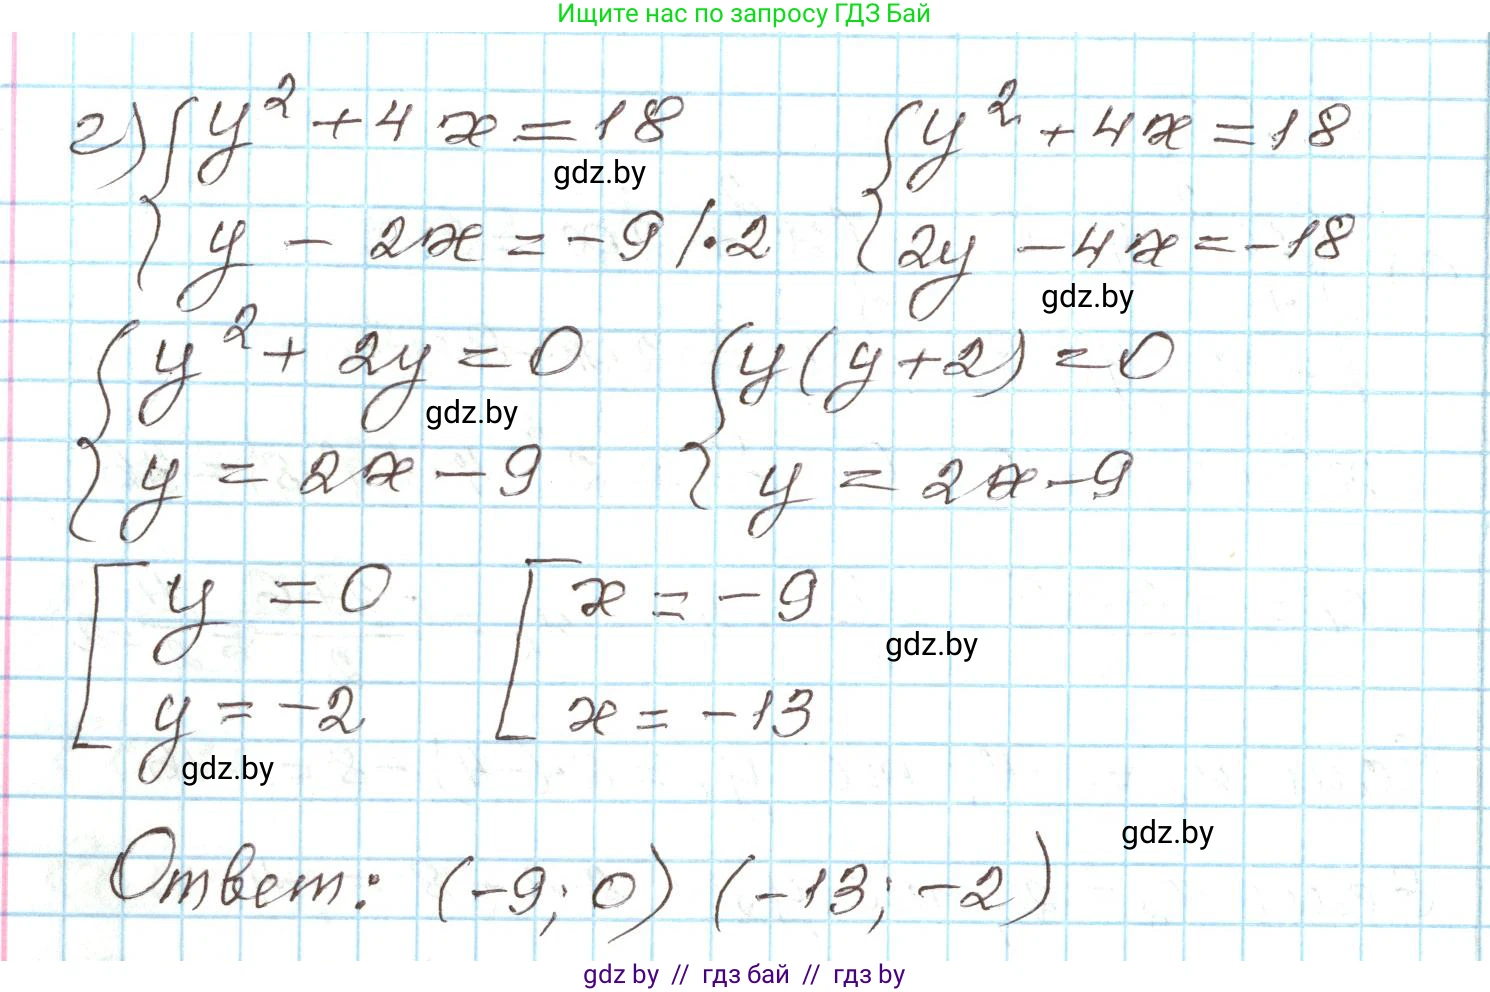 Ищите нас по запросу ГДЗ Бай
г) { y² + 4x = 18 { y² + 4x = 18
gdz.by
y - 2x = -9 | · 2 2y - 4x = -18
gdz.by
{ y² + 2y = 0 { y(y+2) = 0
gdz.by
y = 2x - 9 y = 2x - 9
[ y = 0 [ x = -9
gdz.by
y = -2 x = -13
gdz.by
gdz.by
Ответ: (-9; 0) (-13; -2)
gdz.by // гдз бай // гдз by